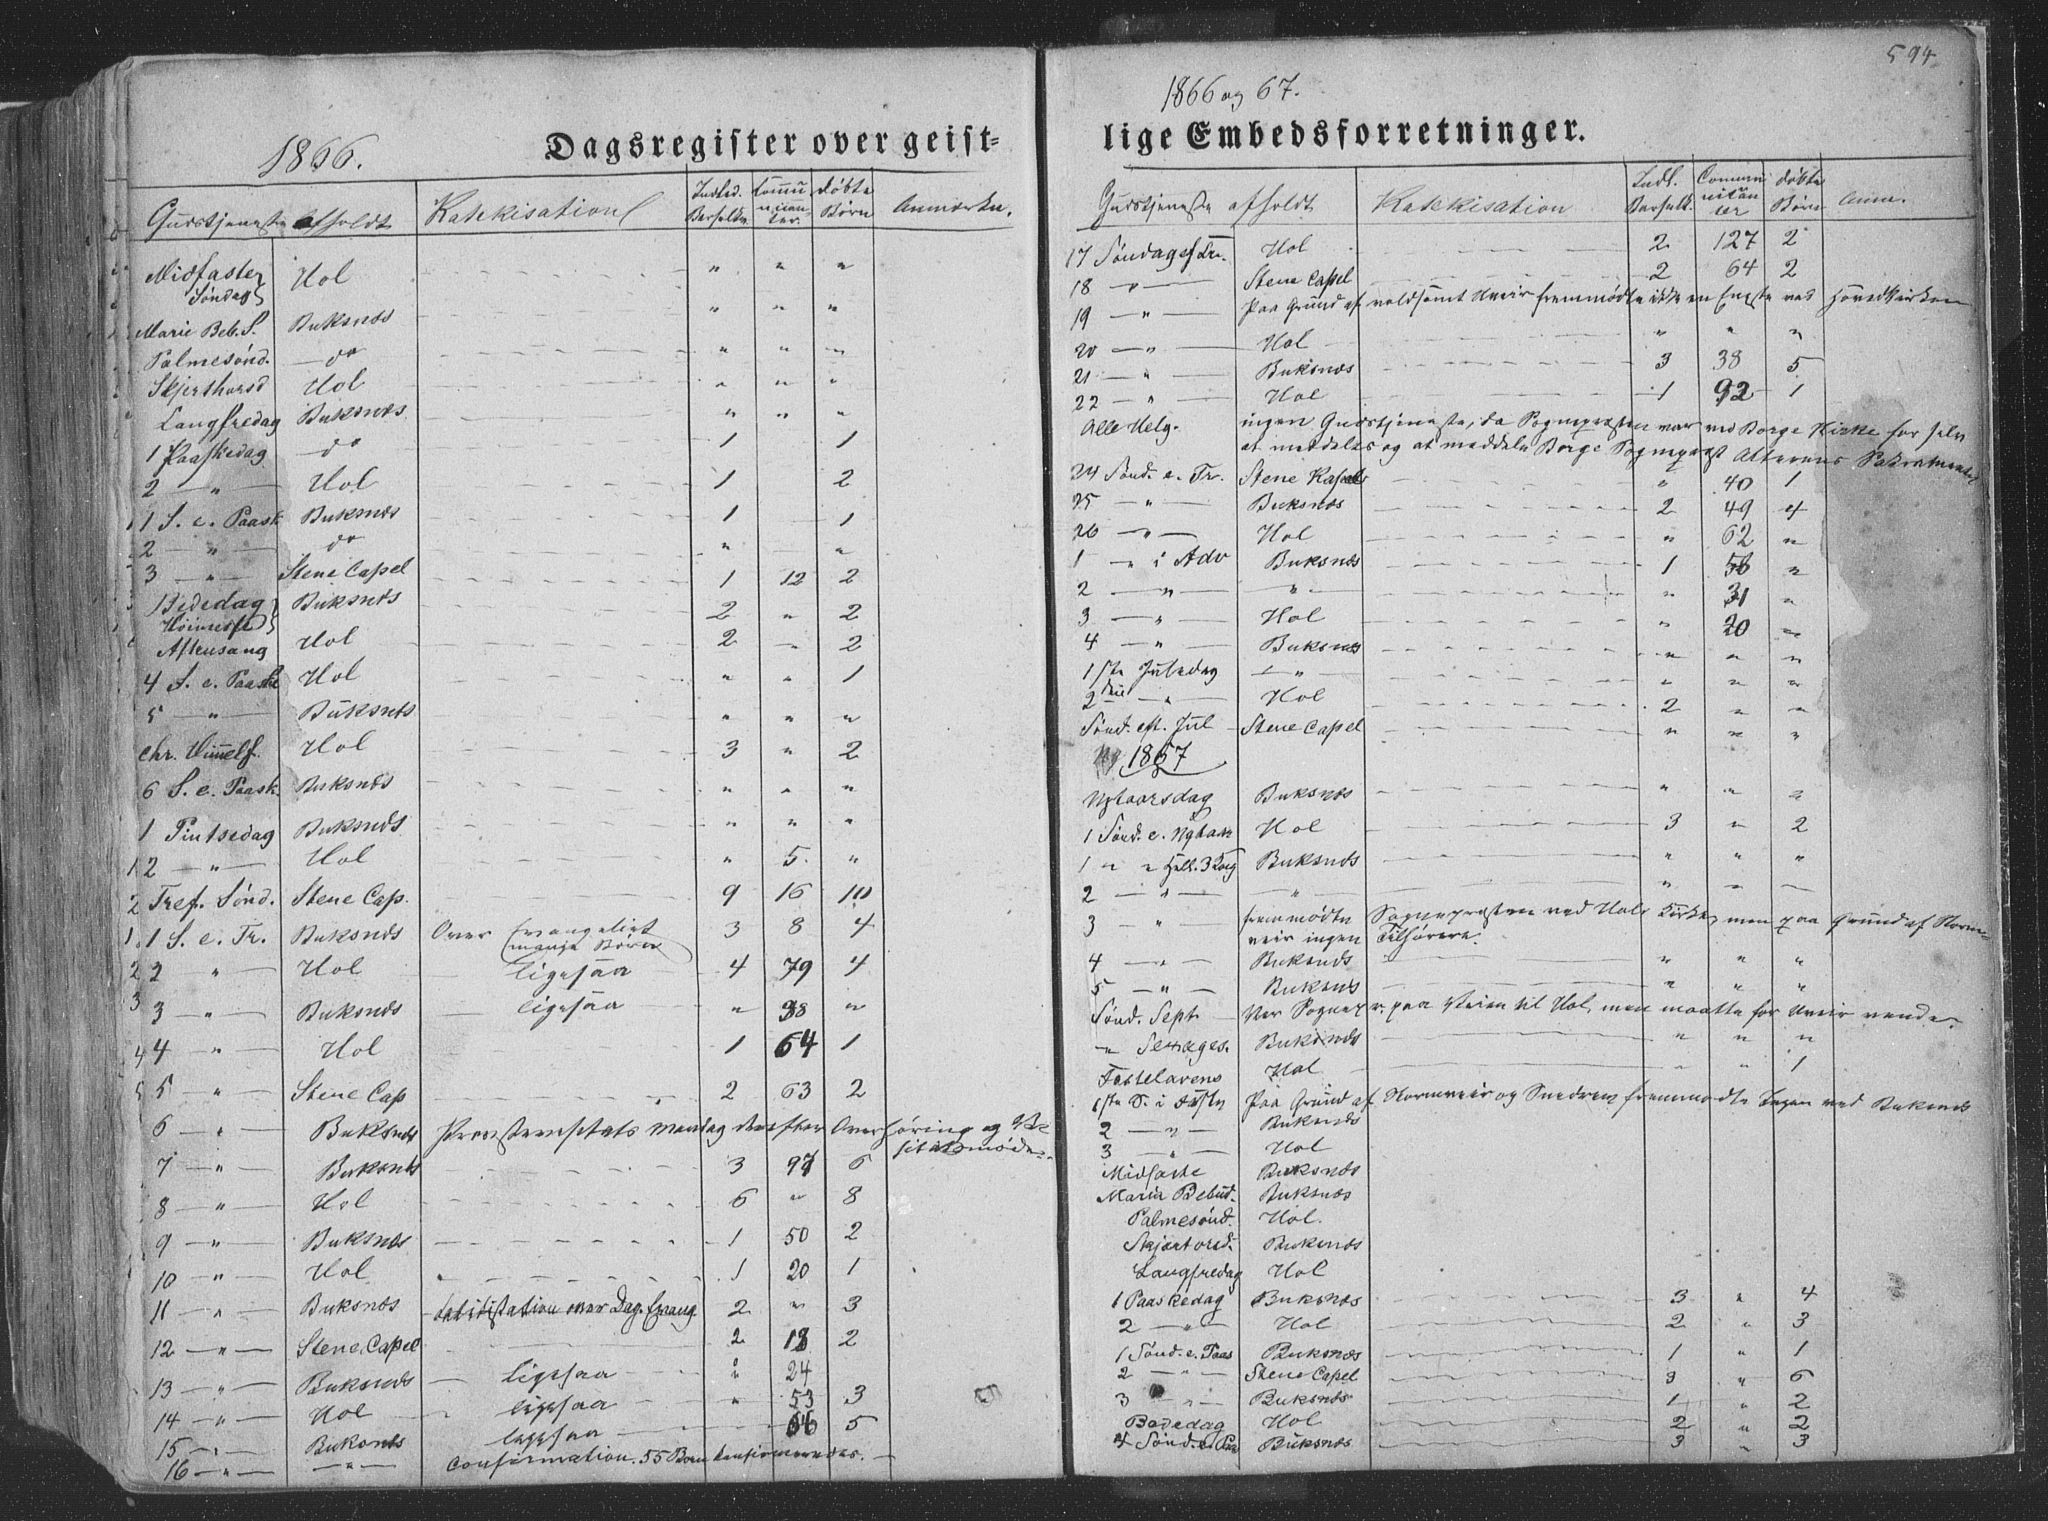 1866.
Dagsregister over geist-
Gudstjeneste afholdt Katekisation Indled. Barselkv. Commu nican ter. Døbte Børn Anmærkn.
Midfaste Søndag Hol " " "
Marie Beb. S. Buksnæs " " "
Palmesønd. do " " "
Skjerthorsd Hol " " "
Langfredag Buksnæs " " "
1 Paaskedag do 1 1
2 — " — Hol 1 2
1 S. e. Paask Buksnæs 1 1
2 — " — do " "
3 — " — Stene Capel 1 12 2
Bededag Høimesse Buksnæs 2 " 2
Aftensang Hol 2 " 2
4 S. e. Paask Hol " " 1
5 — " — Buksnæs " " "
Chr. Himmelf. Hol 3 " 2
6 S. e. Paask. Buksnæs " " "
1 Pintsedag Buksnæs " " "
2 — " — Hol " 5 "
Tref. Sønd. Stene Cap. 9 16 10
1 S. e. Tr. Buksnæs Over Evangeliet mange Børn 3 8 4
2 " — Hol — ligesaa — 4 79 4
3 — " — Buksnæs — ligesaa " 38 "
4 " — Hol 1 64 1
5 " — Stene Cap 2 63 2
6 — " — Buksnæs Provstevisitats Mandag derefter Overhøring og Vi-
sitatsmøde.
7 — " — Buksnæs 3 97 6
8 — " — Hol 6 " 8
9 — " — Buksnæs 1 50 2
10 — " — Hol 1 20 1
11 — " — Buksnæs Catekisation over Dag. Evang. 2 " 3
12 — " — Stene Capel 2 18 2
13 — " — Buksnæs — ligesaa — " 24
14 — " — Hol — ligesaa " 53 3
15 — " — Buksnæs ligesaa — 66 5
16 — " — — " — Confirmation. 55 Børn konfirmeredes. —
594
1866 og 67.
lige Embedsforretninger.
Gudstjeneste afholdt Katekisation Indl. Barselk. Commu nican ter Døbte Børn Anm.
17 Søndag ef Tr. Hol 2 127 2
18 — " — Stene Capel 2 64 2
19 — " — Paa Grund af voldsomt Uveir fremmødte ikke en Eneste ved Hovedkirken
20 — " — Hol " " "
21 — " — Buksnæs 3 38 5
22 — " — Hol 1 92 1
Alle Helg. ingen Gudstjeneste, da Sognepræsten var ved Borge Kirke for selv
at meddeles og at meddele Borge Sognepræst Alterens Sakramente
24 Sønd. e. Tr. Stene Kapel " 40 1
25 — " — Buksnæs 2 49 4
26 — " — Hol " 62 "
1 — " i Adv Buksnæs 1 56 "
2 — " — — " — " 31 "
3 — " — Hol " 20 "
4 — " — Buksnæs " " "
1ste Juledag — " " " "
2den — " — Hol 2 " "
Sønd. eft. Jul Stene Capel " " "
1867
Nytaarsdag Buksnæs " " "
1 Sønd. e. Nytaar Hol 3 " 2
1 " " Hell. 3 Kong Buksnæs " " "
2 — " — — " " — —
3 — " — fremmødte Sognepræsten ved Hols Kirke, men paa Grund af Storm-
veir ingen Tilhørere.
4 — " — Buksnæs " " "
5 — " — Buksnæs " " "
Sønd. Sept. Var Sognepr. paa Veien til Hol, men maatte for Uveir vende.
" Sexages. Buksnæs " " "
Fastelavens Hol " " 1
1ste S. i Faste Paa Grund af Stormveir og Snedrev fremmødte Ingen ved Buksnæs
2 — " — Buksnæs
3 — " — Hol
Midfaste Buksnæs
Maria Bebud. Buksnæs
Palmesønd. Hol.
Skjærtorsd. Buksnæs
Langfredag Hol
1 Paaskedag Buksnæs 3 " 4
2 — " — Hol 2 " 3
1 Sønd. e. Paas Buksnæs 1 " 1
2 — " — Stene Capel 3 " 6
3 — " — Buksnæs 1 " 2
Bededag Hol 2 " 2
4 Sønd. e. Paa Buksnæs 3 " 3